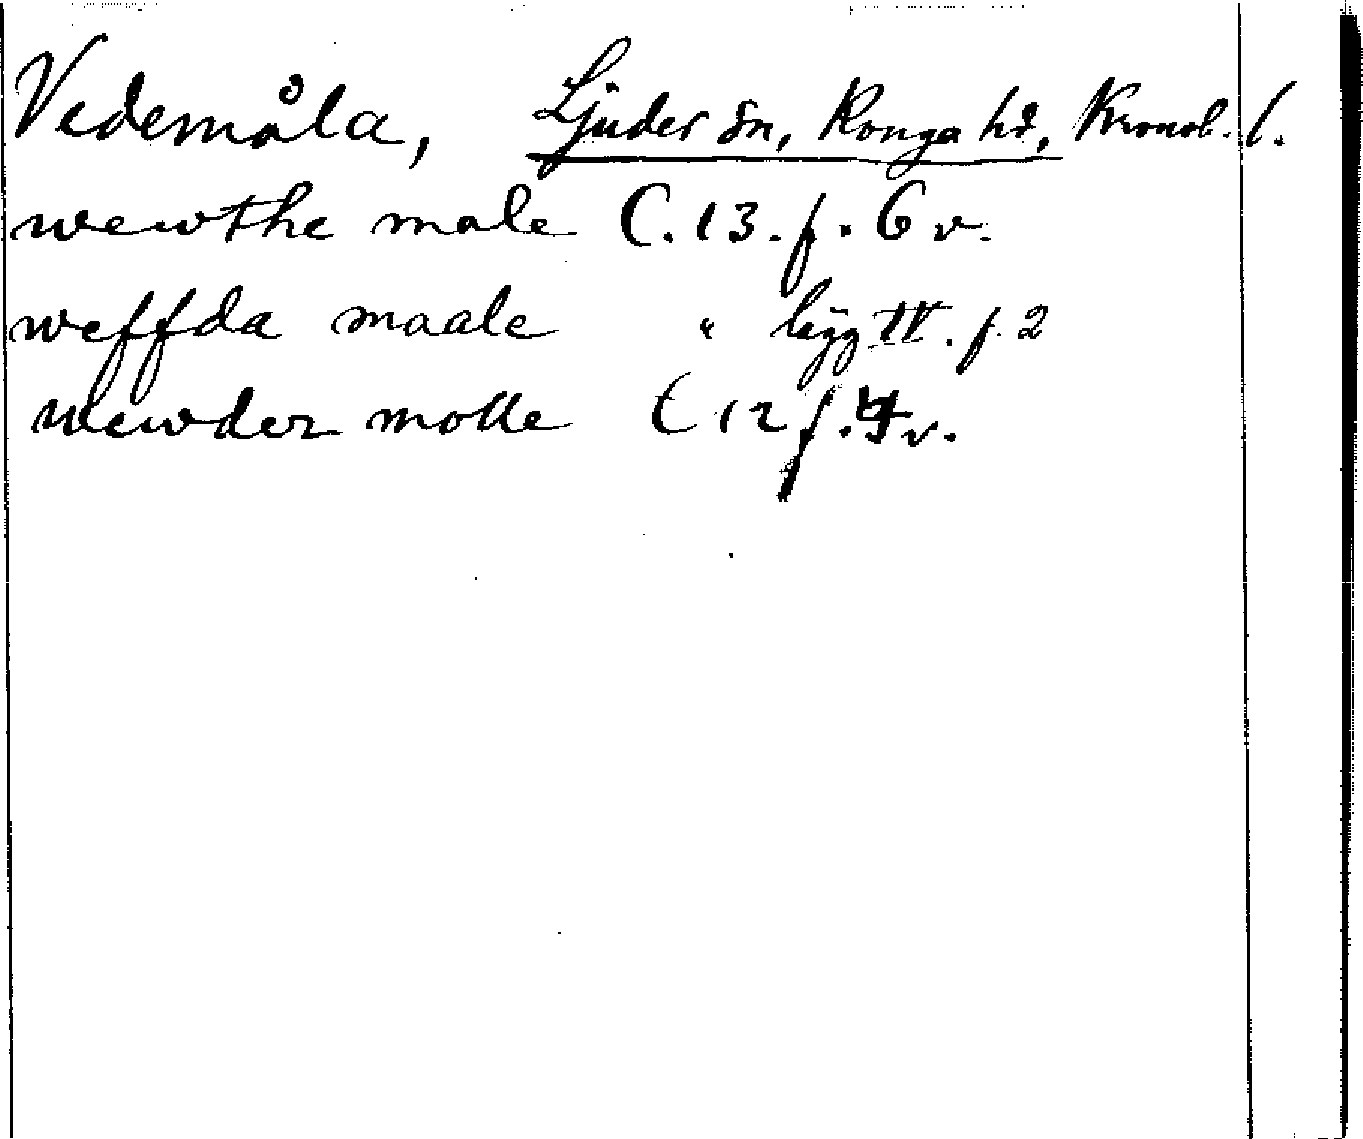 Vedemåla, Ljuder sn, Konga hd, Kronob. l.
wewthe male C. 13. f. 6 v.
weffda maale " lägg IV. f. 2
wewder molle C 12 f. 4 v.